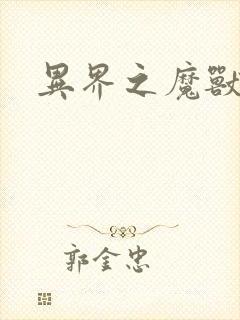 異界之魔獸
郭金忠